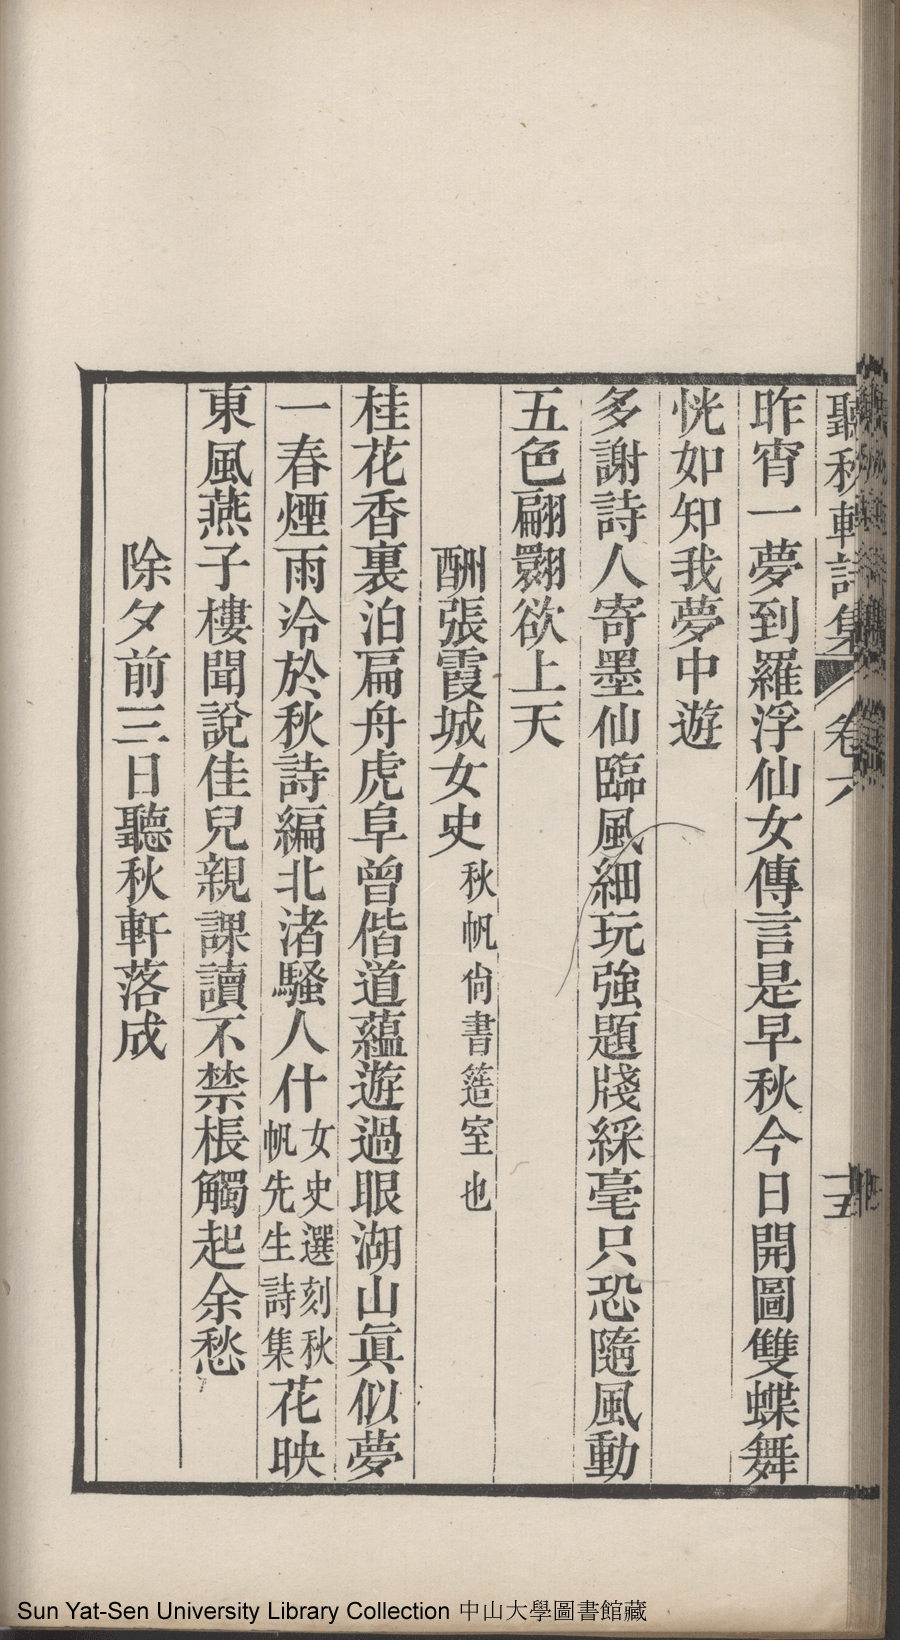 聽秋軒詩集 卷六 十五
昨宵一夢到羅浮仙女傳言是早秋今日開圖雙蝶舞
恍如知我夢中遊
多謝詩人寄墨仙臨風細玩強題牋綵毫只恐隨風動
五色翩翾欲上天
酬張霞城女史秋帆尙書簉室也
桂花香裏泊扁舟虎阜曾偕道蘊遊過眼湖山眞似夢
一春煙雨冷於秋詩編北渚騷人什女史選刻秋帆先生詩集花映
東風燕子樓聞說佳兒親課讀不禁棖觸起余愁
除夕前三日聽秋軒落成
Sun Yat-Sen University Library Collection 中山大學圖書館藏